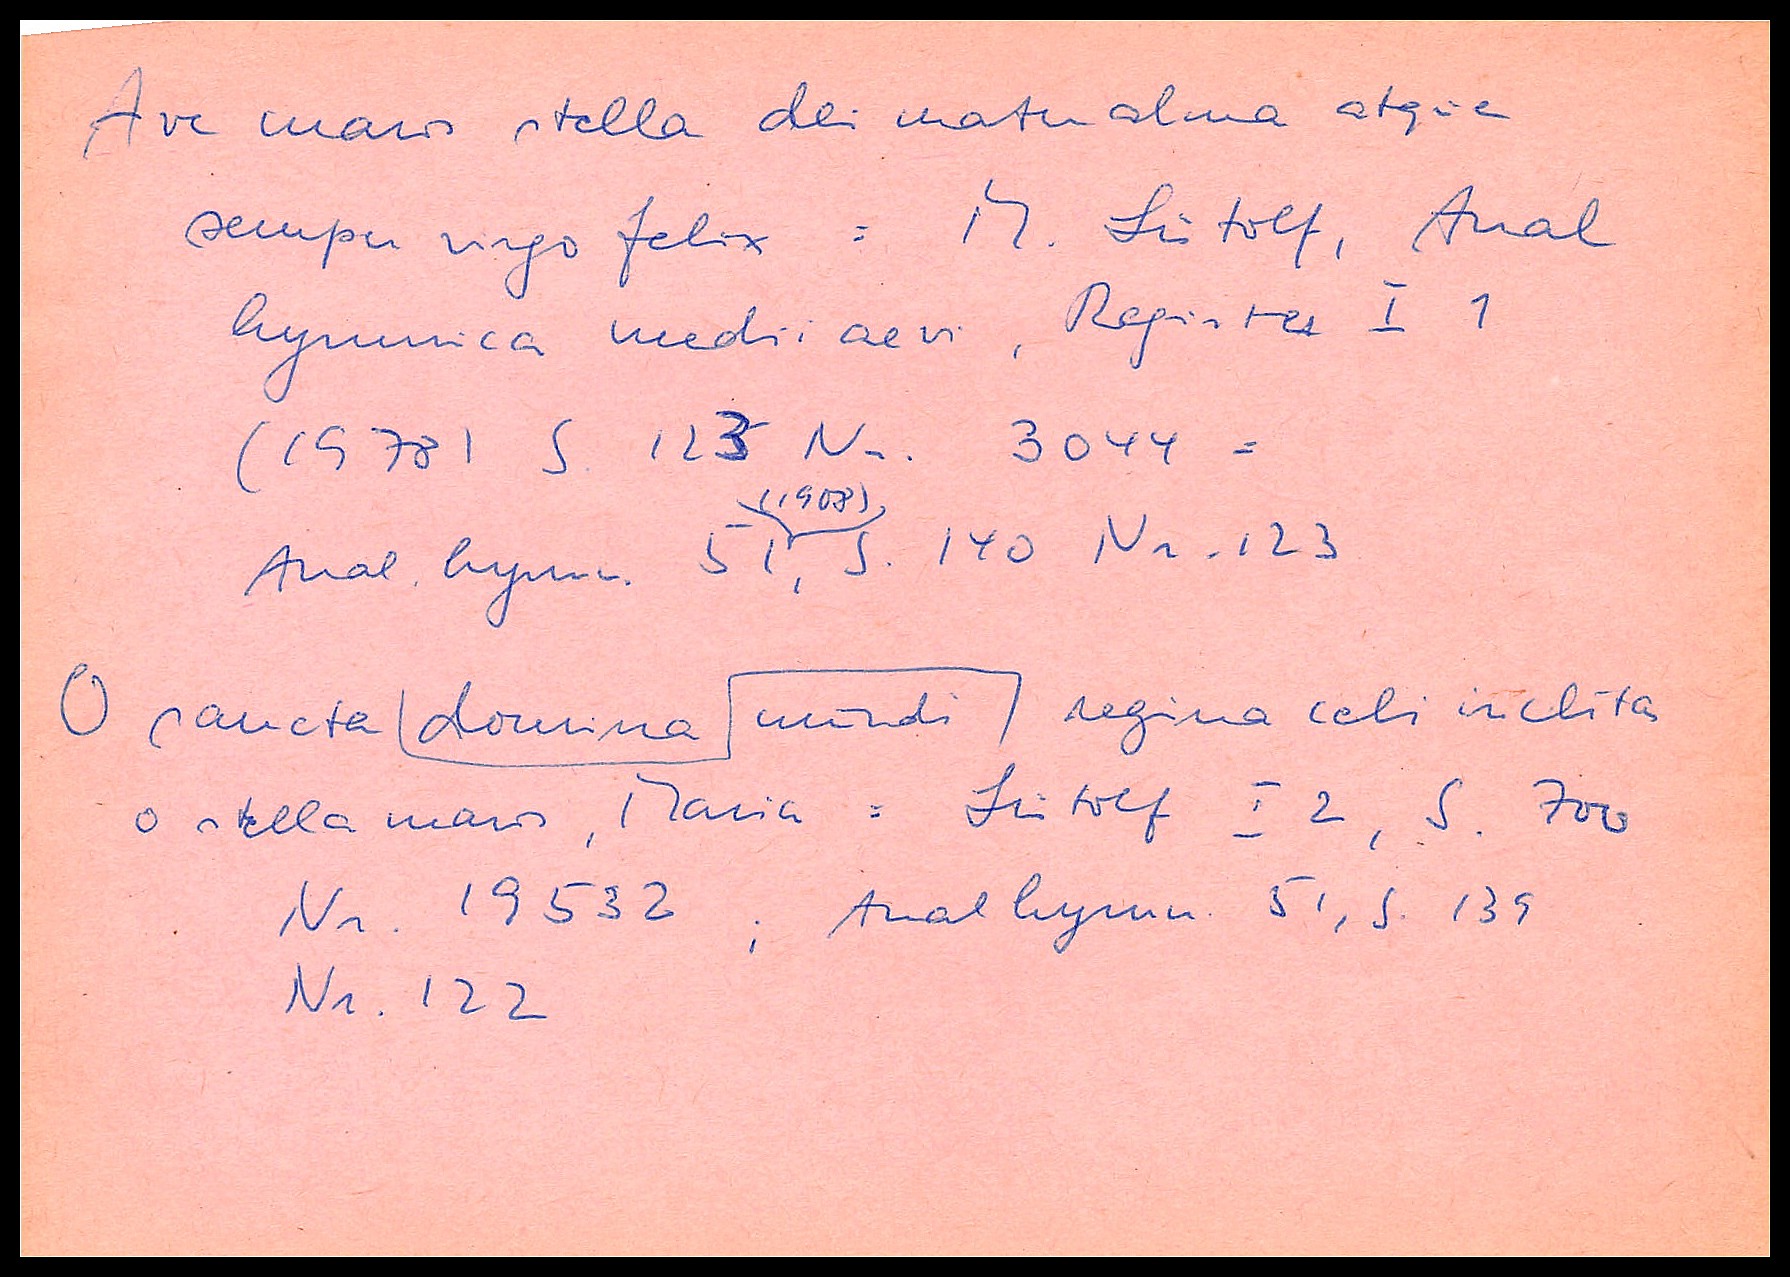 Ave maris stella dei mater alma atque
semper virgo felix = M. Lütolf, Anal
hymnica medii aevi, Register I 1
(1978) S. 123 Nr. 3044 =
(1908)
Anal. hymn. 51, S. 140 Nr. 123
O sancta domina mundi regina celi inclita
o stella maris, Maria = Lütolf I 2, S. 700
Nr. 19532; Anal hymn. 51, S. 139
Nr. 122